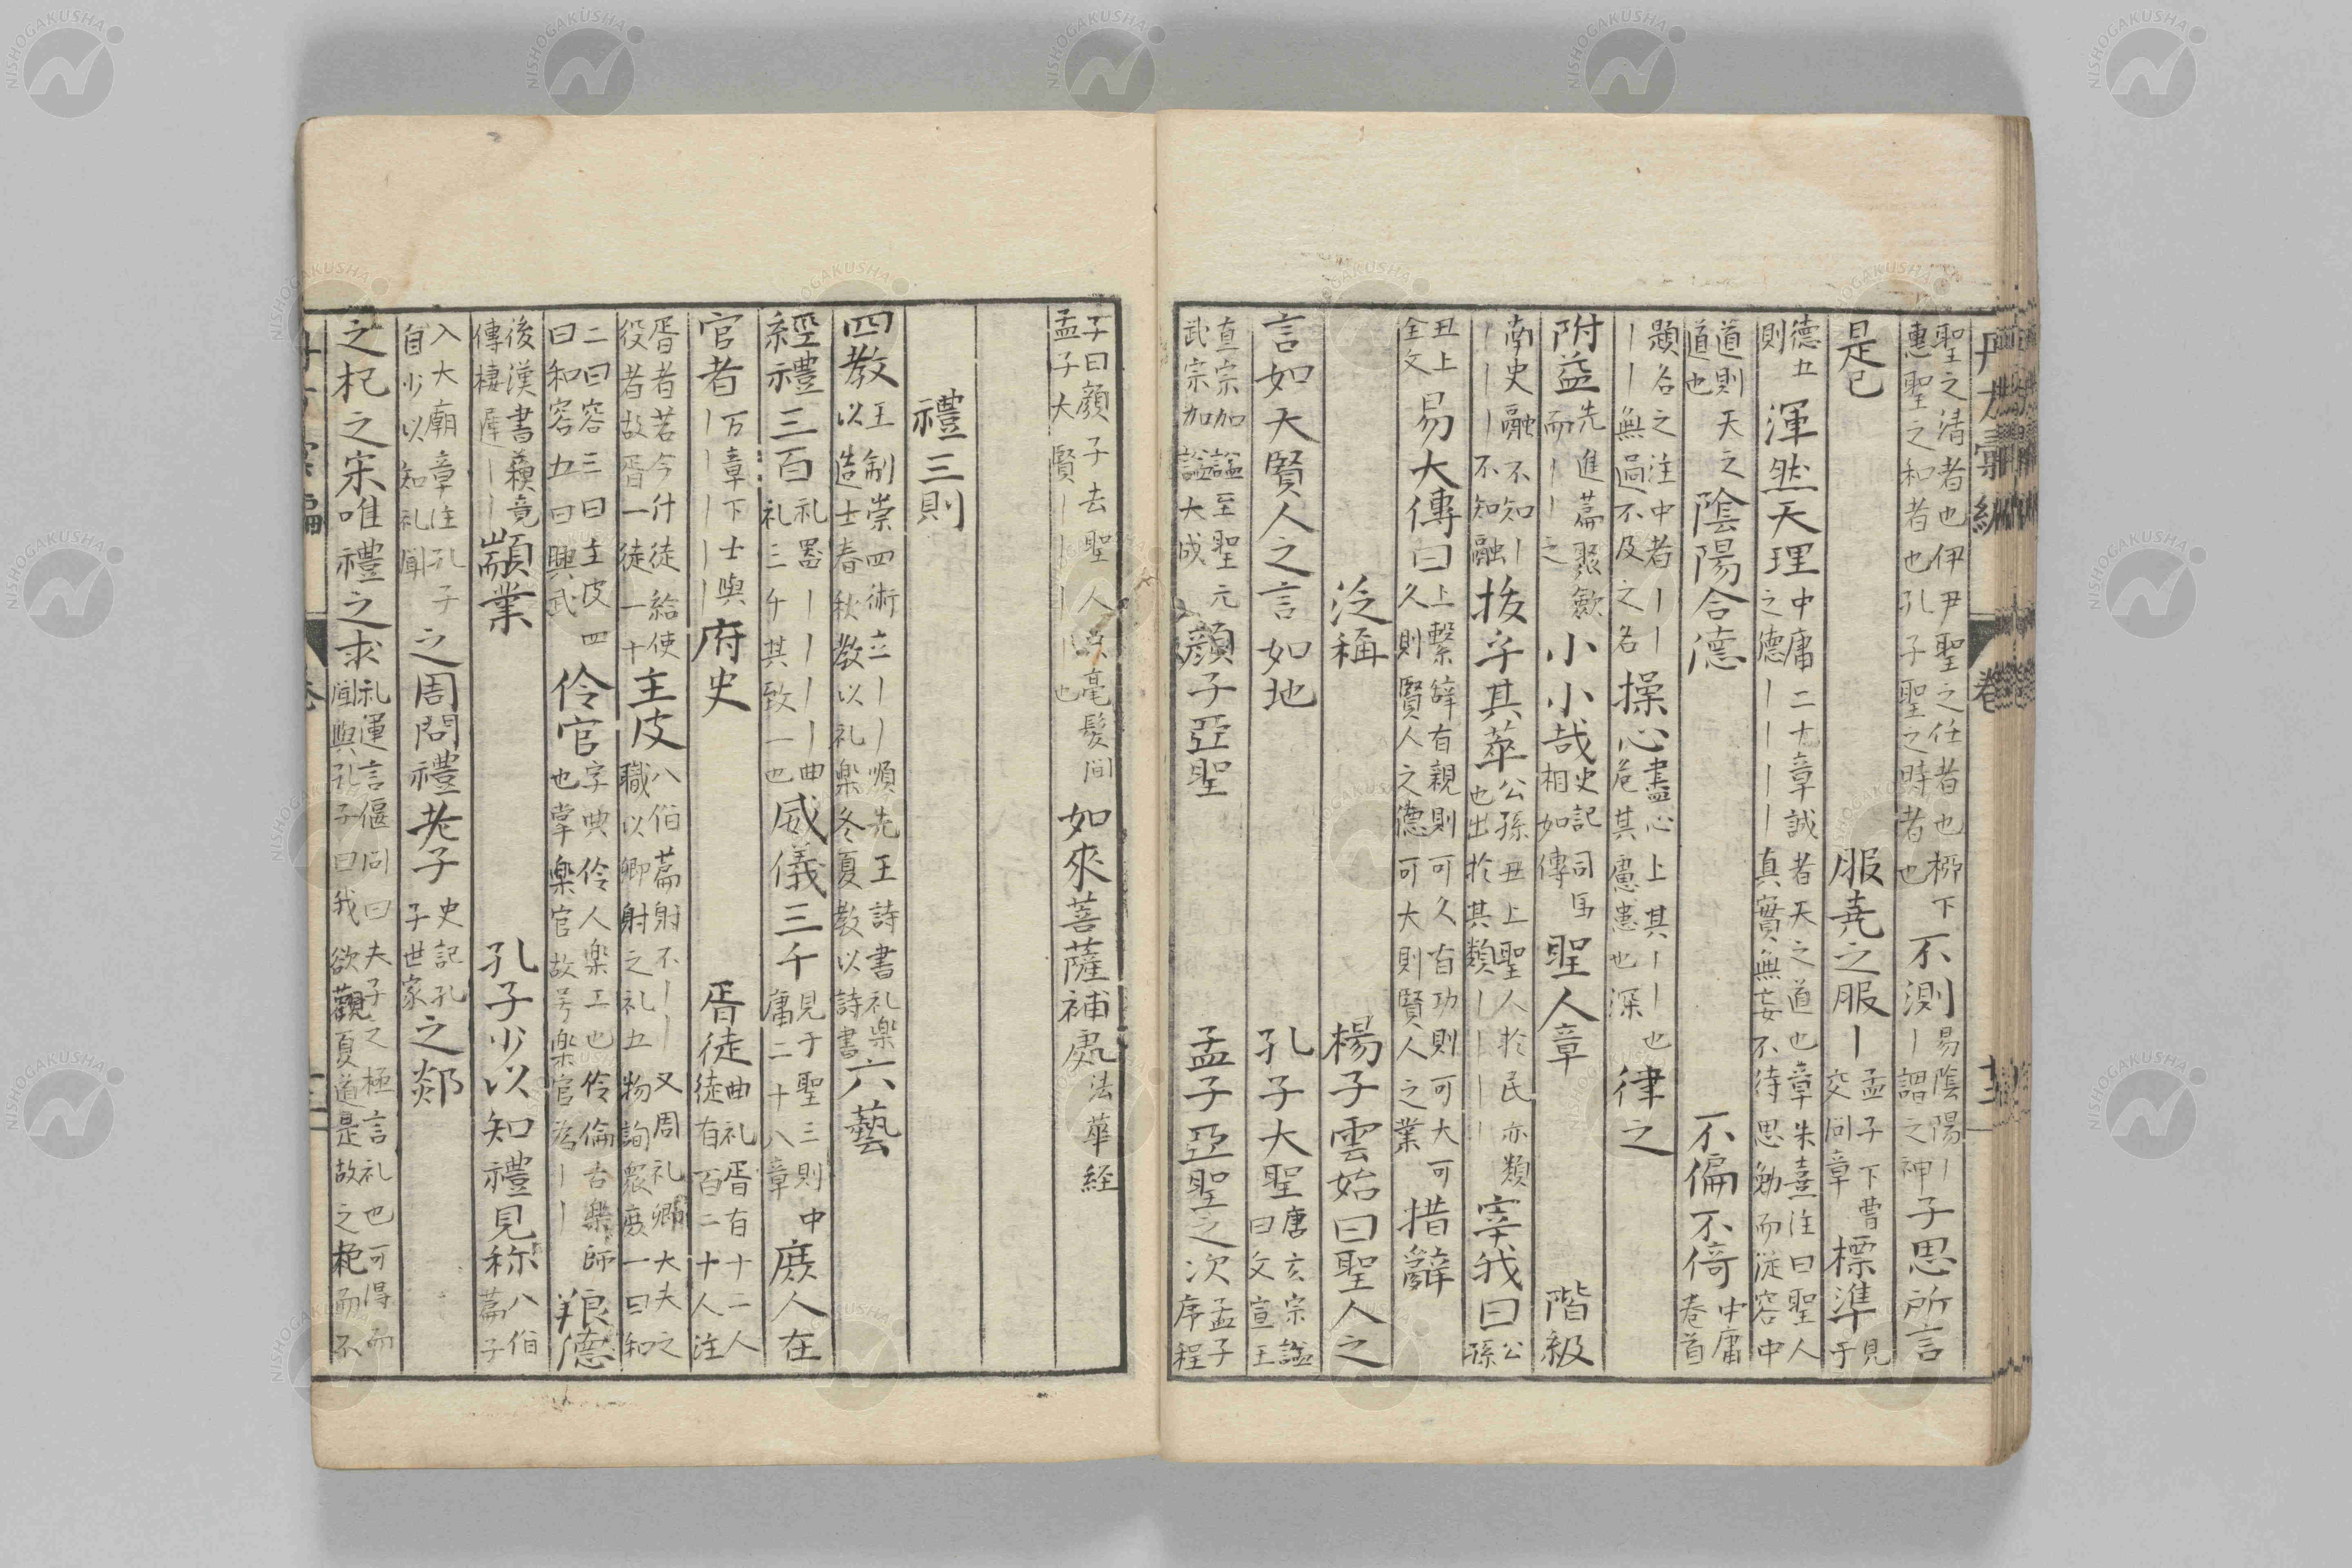 聖之清者也伊尹聖之任者也柳下
惠聖之和者也孔子聖之時者也
不測
易陰陽〡
〡謂之神
子思所言
是已
服堯之服〡
孟子下曹
交問章
標準
見
于
德五
則
渾然天理
中庸二十章誠者天之道也章朱熹注曰聖人
之德〡〡〡〡真實無妄不待思勉而從容中
道則天之
道也
陰陽合德
不偏不倚
中庸
卷首
題名之注中者〡〡
〡〡無過不及之名
操心
盡心上其〡〡也
危其慮患也深
律之
附益
先進篇聚斂
而〡〡之
小小哉
史記司馬
相如傳
聖人章
階級
南史融不知〡
〡〡〡不知融
拔乎其萃
公孫丑上聖人於民亦類
也出於其類〡〡〡〡
宰我曰
公
孫
丑上
全文
易大傳曰
上繫辞有親則可久有功則可大可
久則賢人之德可大則賢人之業
措辭
泛稱
楊子雲始曰聖人之
言如天賢人之言如地
孔子大聖
唐玄宗謚
曰文宣王
真宗加謚至聖元
武宗加謚大成
顔子亞聖
孟子亞聖之次
孟子
序程
子曰顔子去聖人只毫髮間
孟子大賢〡〡〡也
如來菩薩補處
法華経
禮三則
四教
王制崇四術立〡〡順先王詩書礼楽
以造士春秋教以礼楽冬夏教以詩書
六藝
經禮三百
礼器〡〡〡〡曲
礼三千其致一也
威儀三千
見于聖三則中
庸二十八章
庶人在
官者
万章下士與
〡〡〡〡〡
府史
胥徒
曲礼胥有十二人
徒有百二十人注
胥者若今什徒給使
役者故胥一徒一十
主皮
八佾篇射不〡〡又周礼卿大夫之
職以卿射之礼五物詢衆庶一曰和
二曰容三曰主皮四
曰和容五曰興武
伶官
字典伶人楽工也伶倫古楽師
也掌楽官故号楽官為〡〡
狼德
後漢書蘓竟
傳棲遲〡〡
顓業
孔子少以知禮見称
八佾
篇子
入大廟章注孔子
自少以知礼聞
之周問禮老子
史記孔
子世家
之郯
之杞之宋唯禮之求
礼運言偃問曰夫子之極言礼也可得而
聞與孔子曰我欲觀夏道是故之杞而不